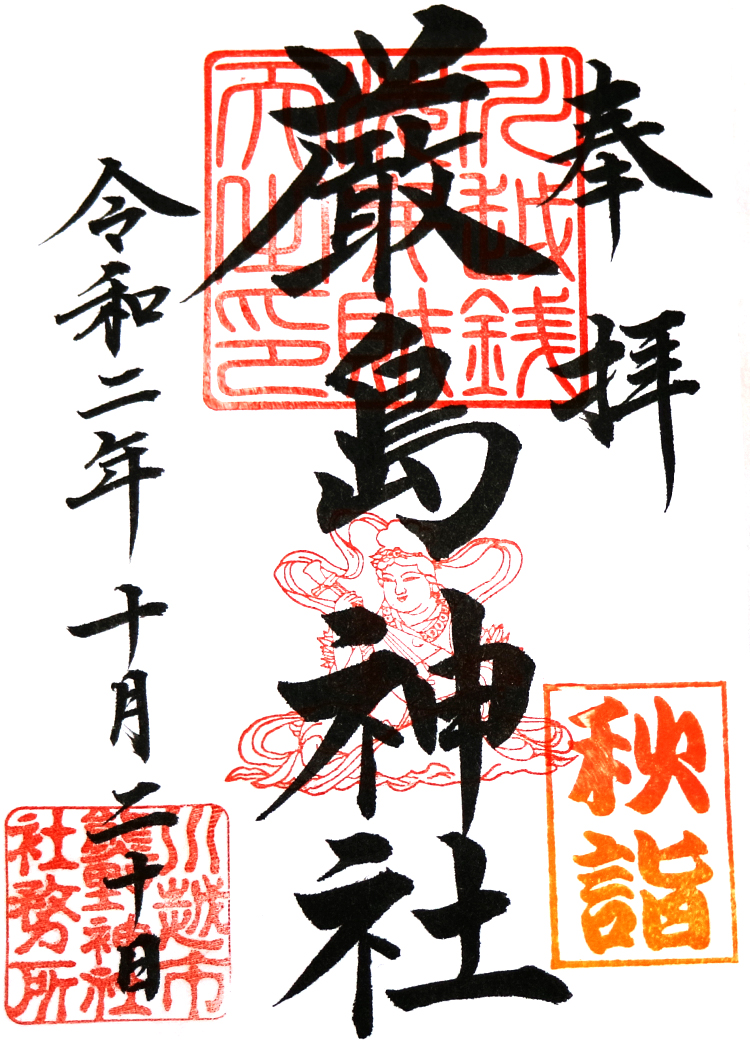 奉拝
川越銭
洗弁財
天之印
厳島神社
秋詣
令和二年十月二十日
川越市
熊野神社
社務所